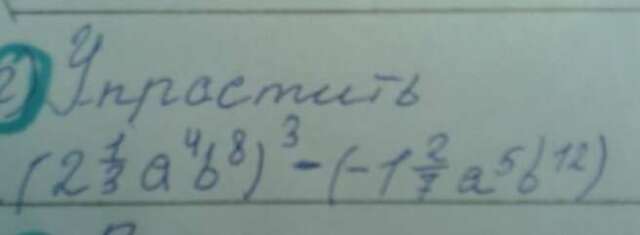 2) Упростить
(2 1/3 a⁴b⁸)³ - (-1 2/7 a⁵b¹²)